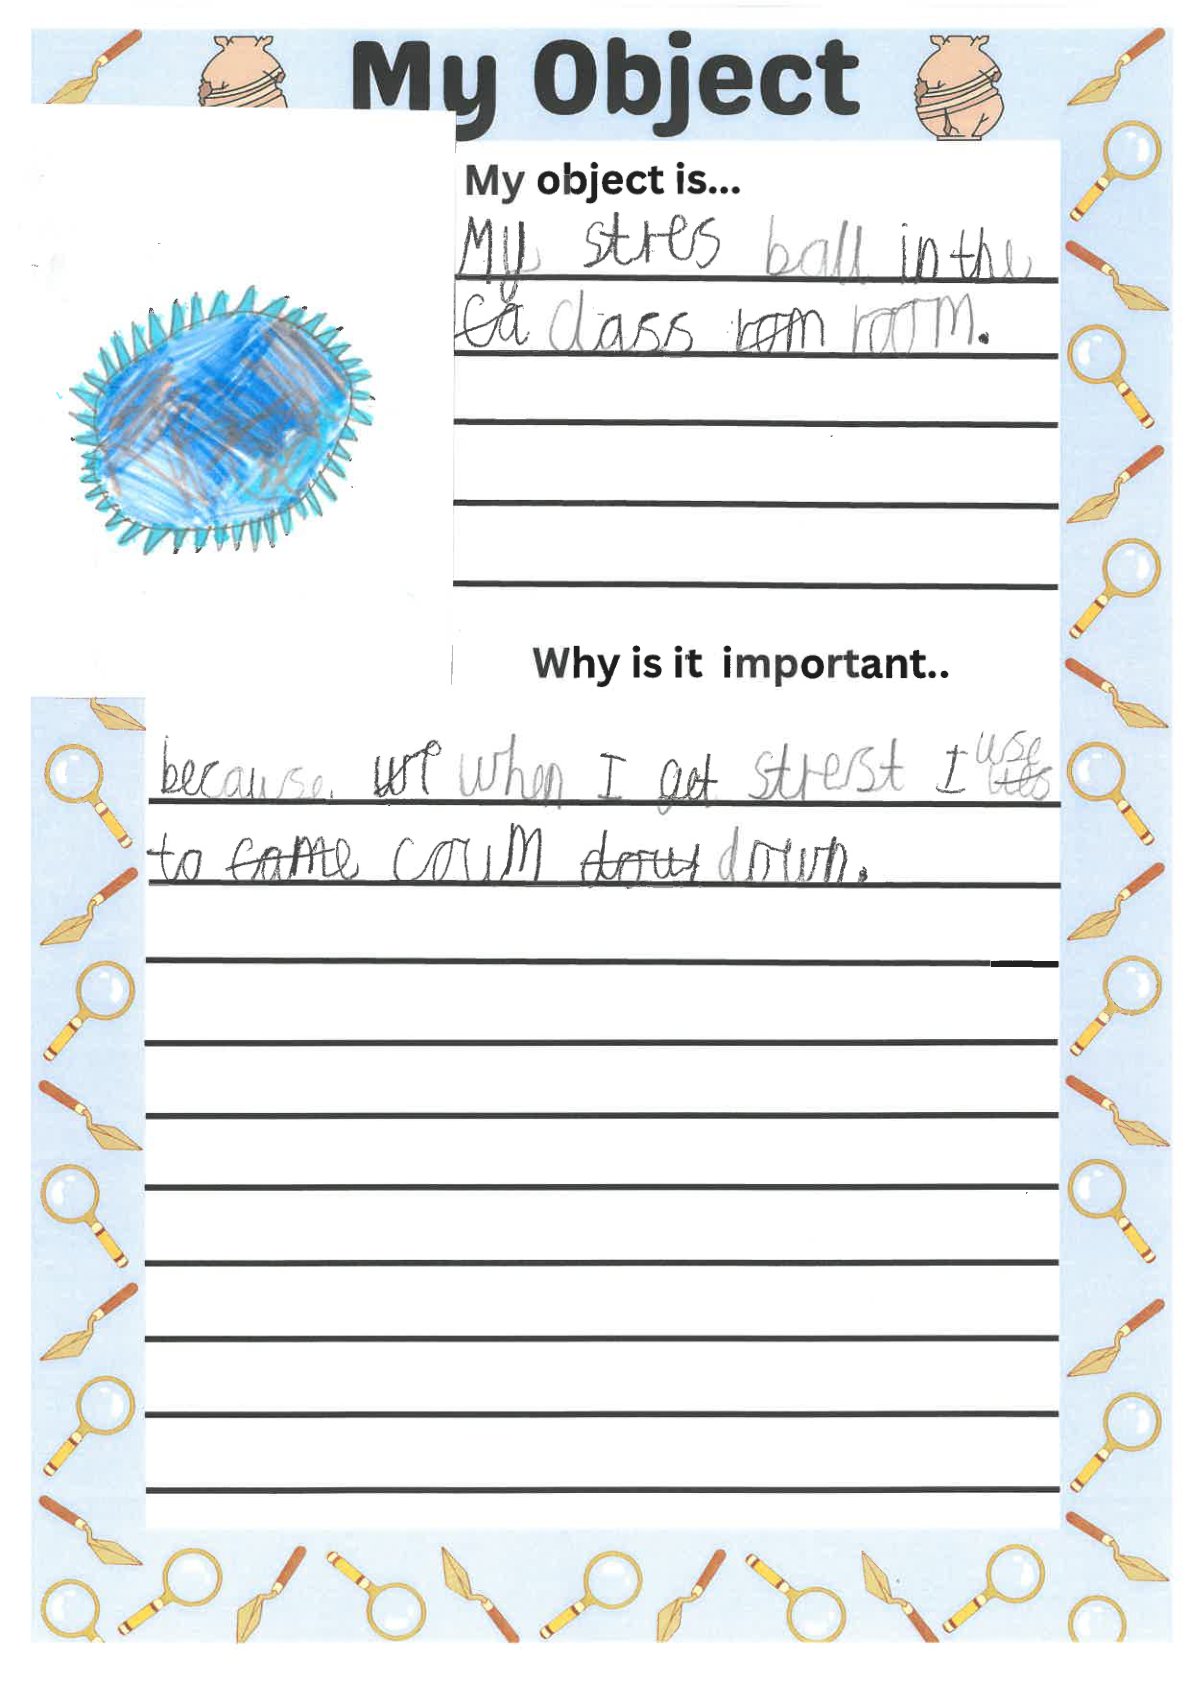 My Object
My object is...
My stres ball in the
ca class rom room.
Why is it important..
because when I get strest I use
to came coum dow down.